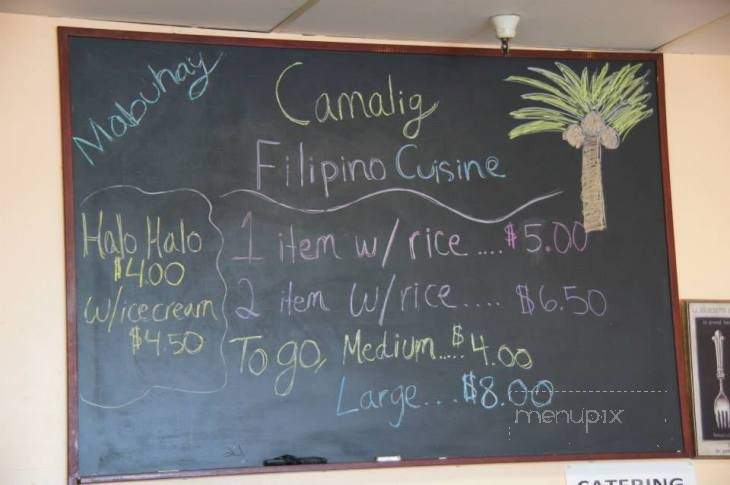 Mabuhay
Camalig
Filipino Cuisine
Halo Halo
$4.00
w/icecream
$4.50
1 item w/ rice .... $5.00
2 item w/rice.... $6.50
To go, Medium..... $4.00
Large... $8.00
menupix
CATERING